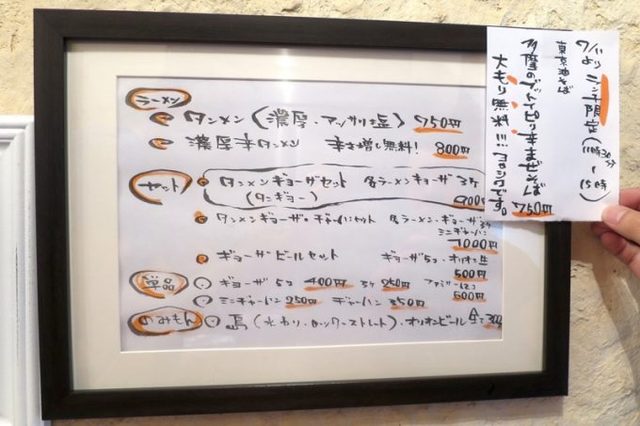 ラーメン
タンメン(濃厚・アッサリ塩) 750円
濃厚辛タンメン 辛さ増し無料! 800円
セット
タンメンギョーザセット 各ラーメン ギョーザ3ケ
(タンギョー) 900円
タンメンギョーザ・チャーハンセット 各ラーメン・ギョーザ3ケ
ミニチャーハン
1000円
ギョーザビールセット ギョーザ5コ・オリオン生
500円
単品
ギョーザ 5コ 400円 3ケ 250円
600円
ミニチャーハン 250円 チャーハン 350円
のみもん
島(水わり・ロック・ストレート)・オリオンビール 全て300
7/11より ランチ限定(11時30分~15時)
東京油そば
多摩のブットイピリ辛まぜそば 750円
大もり無料!!! です。